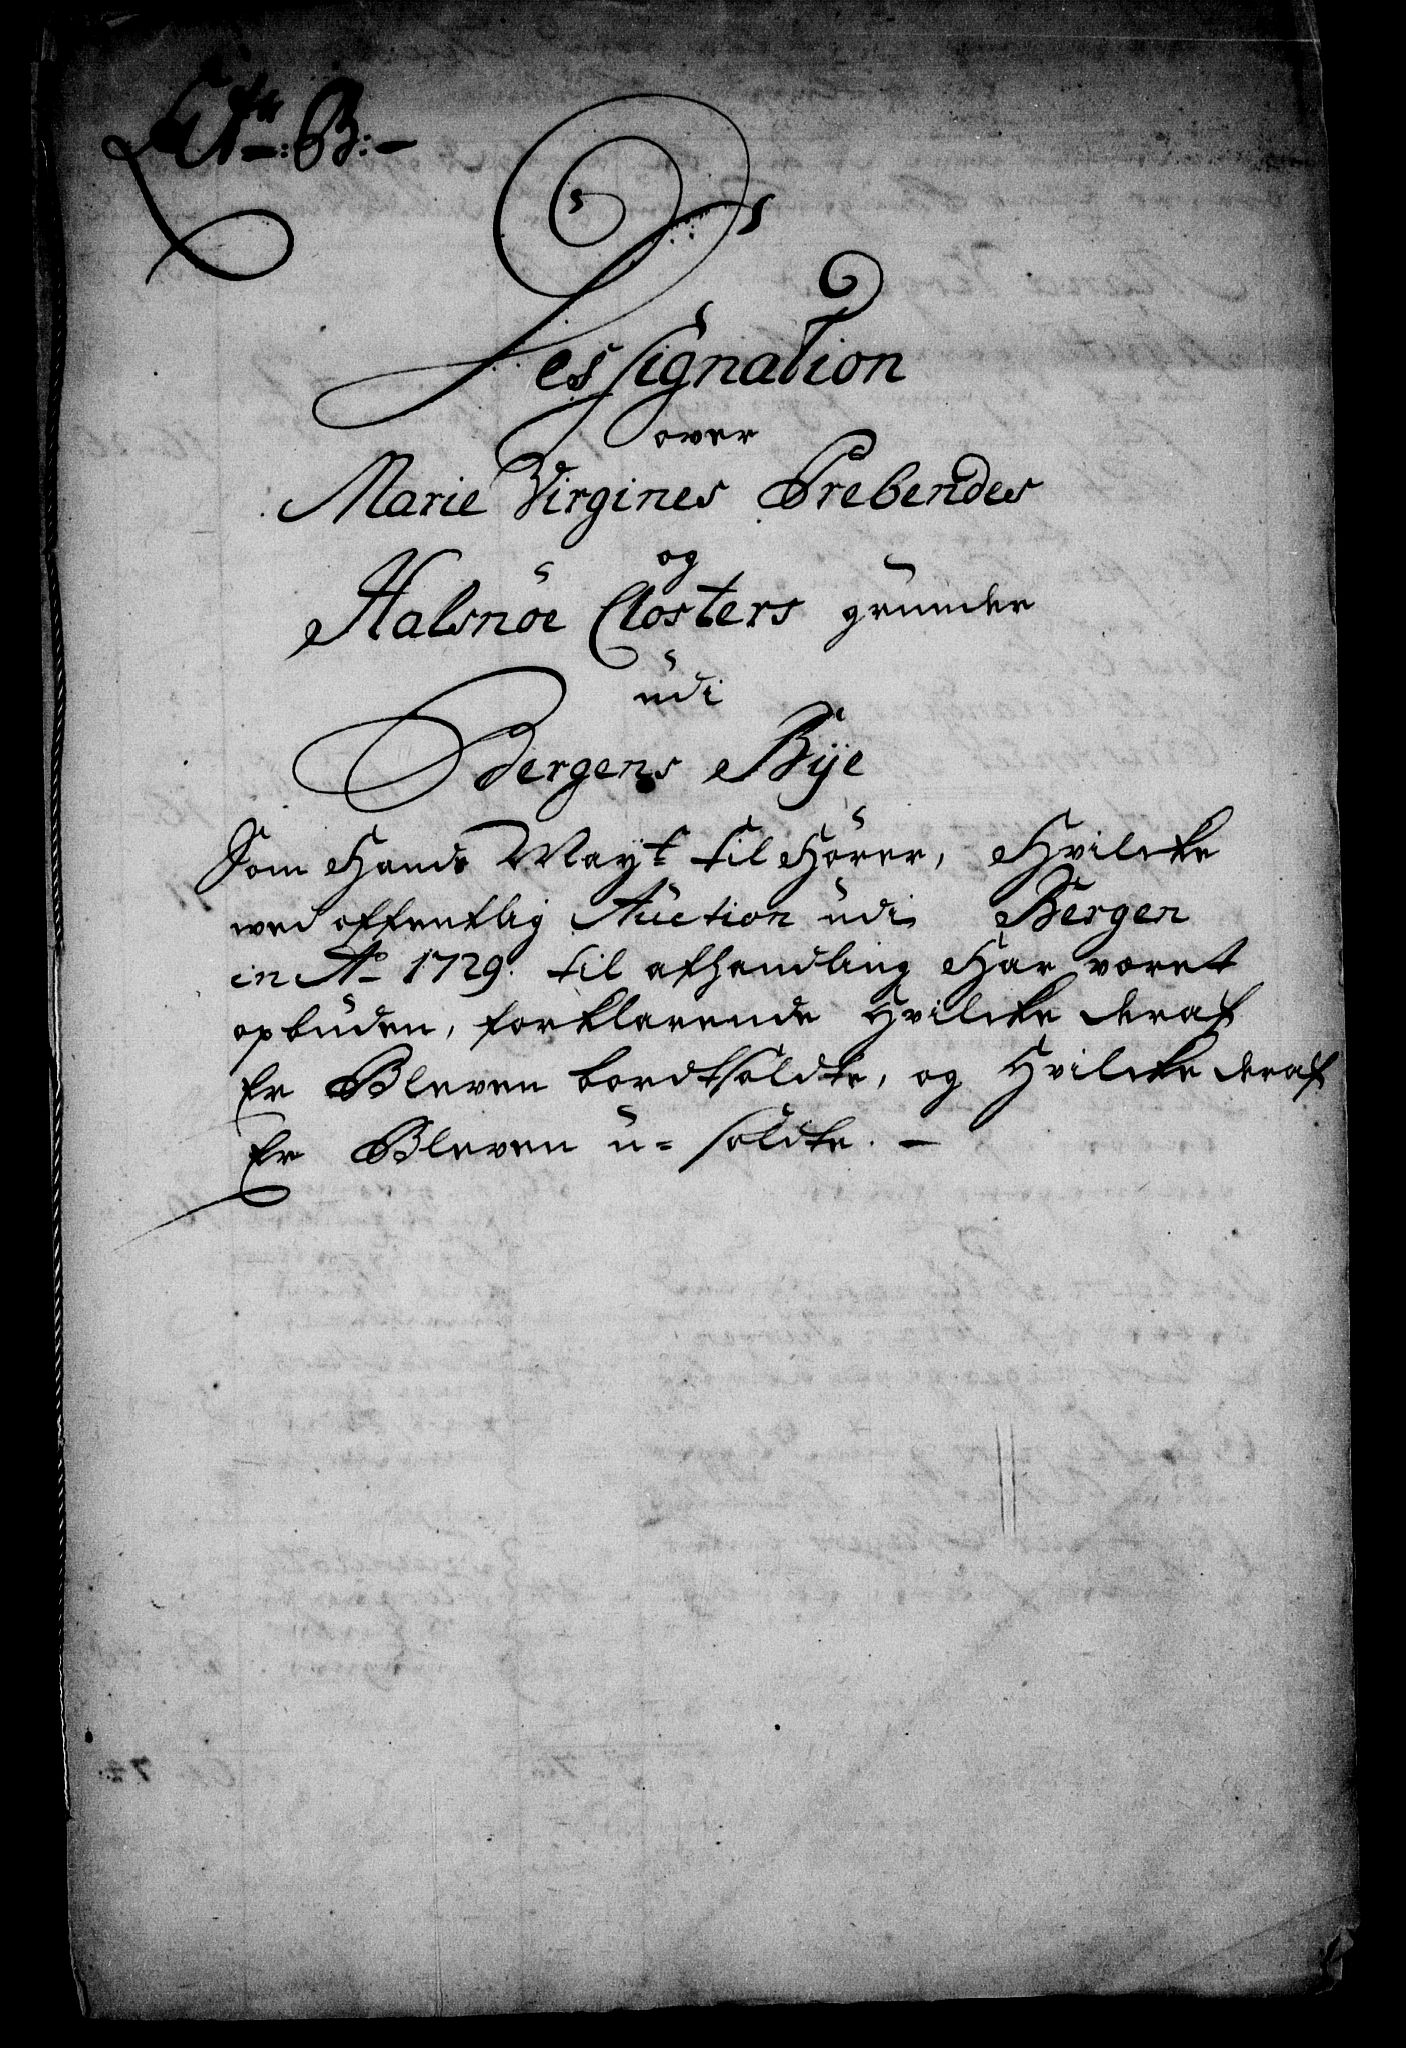 Litr: B:
Dessignation
over
Marie Virgines Prebendes
og
Halsnöe Closters grunder
udi
Bergens Bÿe
Som Hands Mayt. til Hörer, Hvilcke
ved offentlig Auction udi Bergen
in Ao 1729. til afhandling Har voret
opbuden, forklarende Hvilcke deraf
Er Bleven bordtsoldte, og Hvilcke deraf
Er Bleven u= soldte. —